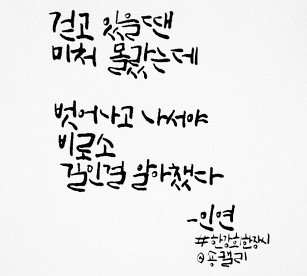 걷고 있을 땐
미처 몰랐는데
벗어나고 나서야
비로소
길인걸 알아챘다
-인연
#한강희한장시
@송캘리